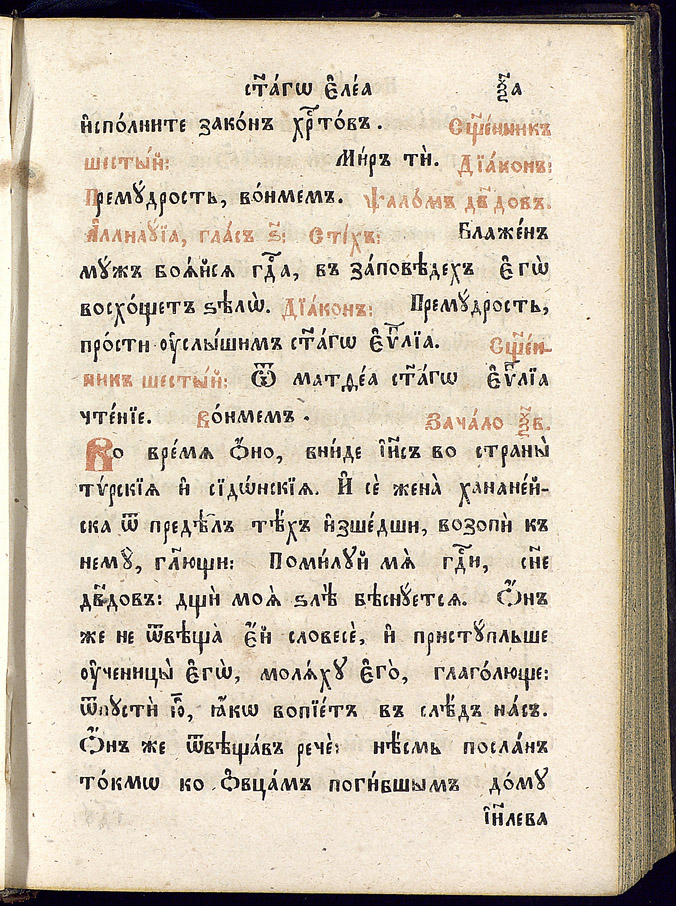 ст҃а́гѡ є҆ле́а ѯ҃а
и҆спо́лните зако́нъ хрⷭ҇то́въ. Сщ҃е́нникъ
шесты́й: Ми́ръ тѝ. Дїа́конъ:
Премꙋ́дрость, во́нмемъ. Ѱало́мъ дв҃довъ.
А҆ллилꙋ́їа, гла́съ ѕ҃: Сті́хъ: Блаже́нъ
мꙋ́жъ боѧ́йсѧ гдⷭ҇а, въ за́повѣдехъ є҆гѡ̀
восхо́щетъ ѕѣлѡ̀. Дїа́конъ: Премꙋ́дрость,
про́сти ᲂу҆слы́шимъ ст҃а́гѡ є҆ѵⷢ҇лїа. Сщ҃е́н-
никъ шесты́й: Ѿ матѳе́а ст҃а́гѡ є҆ѵⷢ҇лїа
чте́нїе. Во́нмемъ. Зача́ло ѯ҃в.
Во вре́мѧ ѻ҆́но, вни́де і҆и҃съ во страны̀
тѵ́рскїѧ и҆ сїдѡ́нскїѧ. И҆ сѐ жена̀ ханане́й-
ска ѿ предѣ̑лъ тѣ́хъ и҆зше́дши, возопѝ къ
немꙋ̀, гл҃ющи: Поми́лꙋй мѧ̀ гдⷭ҇и, сн҃е
дв҃довъ: дщѝ моѧ̀ ѕлѣ̀ бѣснꙋ́етсѧ. Ѻ҆́нъ
же не ѿвѣща̀ є҆́й словесѐ, и҆ пристꙋ́пльше
ᲂу҆ченицы̀ є҆гѡ̀, молѧ́хꙋ є҆го̀, глаго́люще:
Ѿпꙋстѝ ю҆̀, ꙗ҆́кѡ вопїе́тъ въ слѣ́дъ на́съ.
Ѻ҆́нъ же ѿвѣща́въ речѐ: нѣ́смь посла́нъ
то́кмѡ ко ѻ҆вца́мъ поги́бшымъ до́мꙋ
і҆и҃лева